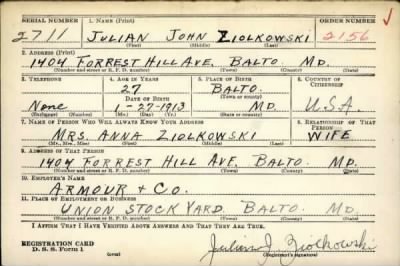 SERIAL NUMBER 1. NAME (Print) ORDER NUMBER
2711 JULIAN JOHN ZIOLKOWSKI 2156
(First) (Middle) (Last)
2. ADDRESS (Print)
1404 FORREST HILL AVE, BALTO. MD.
(Number and street or R. F. D. number) (Town) (County) (State)
3. TELEPHONE 4. AGE IN YEARS 5. PLACE OF BIRTH 6. COUNTRY OF CITIZENSHIP
27 BALTO.
DATE OF BIRTH (Town or county)
None 1-27-1913 MD. U.S.A.
(Exchange) (Number) (Mo.) (Day) (Yr.) (State or country)
7. NAME OF PERSON WHO WILL ALWAYS KNOW YOUR ADDRESS 8. RELATIONSHIP OF THAT PERSON
MRS. ANNA ZIOLKOWSKI WIFE
(Mr., Mrs., Miss) (First) (Middle) (Last)
9. ADDRESS OF THAT PERSON
1404 FORREST HILL AVE, BALTO. MD.
(Number and street or R. F. D. number) (Town) (County) (State)
10. EMPLOYER'S NAME
ARMOUR & CO.
11. PLACE OF EMPLOYMENT OR BUSINESS
UNION STOCK YARD BALTO. MD.
(Number and street or R. F. D. number) (Town) (County) (State)
I AFFIRM THAT I HAVE VERIFIED ABOVE ANSWERS AND THAT THEY ARE TRUE.
REGISTRATION CARD
D. S. S. Form 1 (over) Julian J. Ziolkowski
(Registrant's signature)